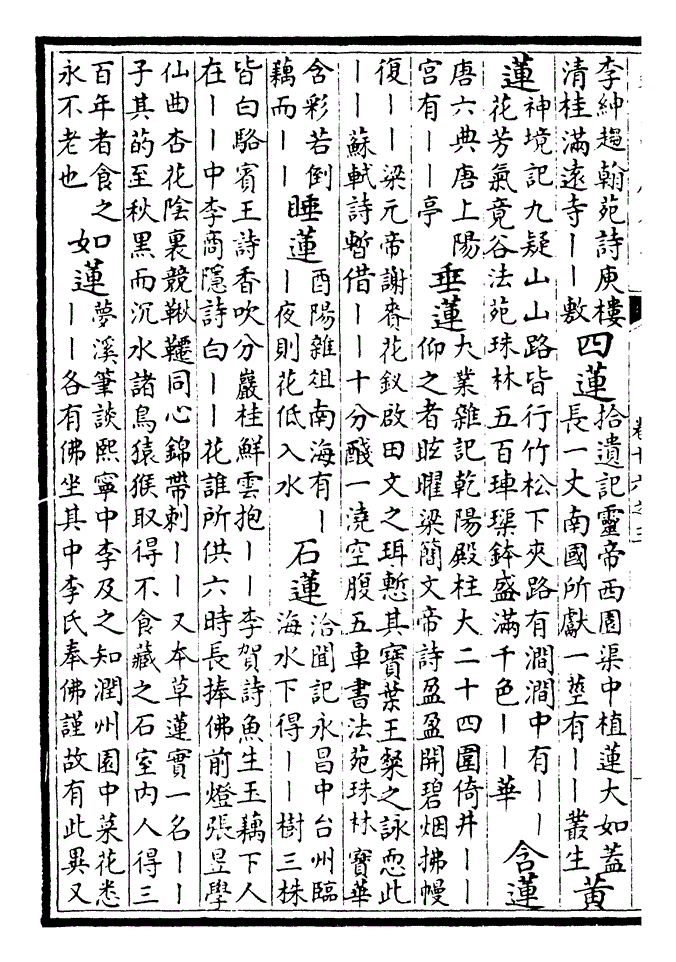 李紳趨翰苑詩庾樓
清桂滿遠寺丨丨敷
四蓮
拾遺記靈帝西園渠中植蓮大如蓋
長一丈南國所獻一莖有丨丨叢生
黃
蓮
神境記九疑山山路皆行竹松下夾路有澗澗中有丨丨
花芳氣竟谷法苑珠林五百琿璖鉢盛滿千色丨丨華
含蓮
唐六典唐上陽
宫有丨丨亭
垂蓮
大業雜記乾陽殿柱大二十四圍倚井丨丨
仰之者眩曜梁簡文帝詩盈盈開碧烟拂幔
復丨丨梁元帝謝賚花釵啟田文之珥慙其寶葉王粲之詠恧此
丨丨蘇軾詩暫借丨丨十分醆一澆空腹五車書法苑珠林寶華
含彩若倒
藕而丨丨
睡蓮
酉陽雜俎南海有丨
丨夜則花低入水
石蓮
洽聞記永昌中台州臨
海水下得丨丨樹三株
皆白駱賓王詩香吹分巖桂鮮雲抱丨丨李賀詩魚生玉藕下人
在丨丨中李商隱詩白丨丨花誰所供六時長捧佛前燈張昱學
仙曲杏花陰裏競鞦韆同心錦帶刺丨丨又本草蓮實一名丨丨
子其菂至秋黑而沉水諸鳥猿猴取得不食藏之石室内人得三
百年者食之
永不老也
如蓮
夢溪筆談熙寧中李及之知潤州園中菜花悉
丨丨各有佛坐其中李氏奉佛謹故有此異又
卷十六之三